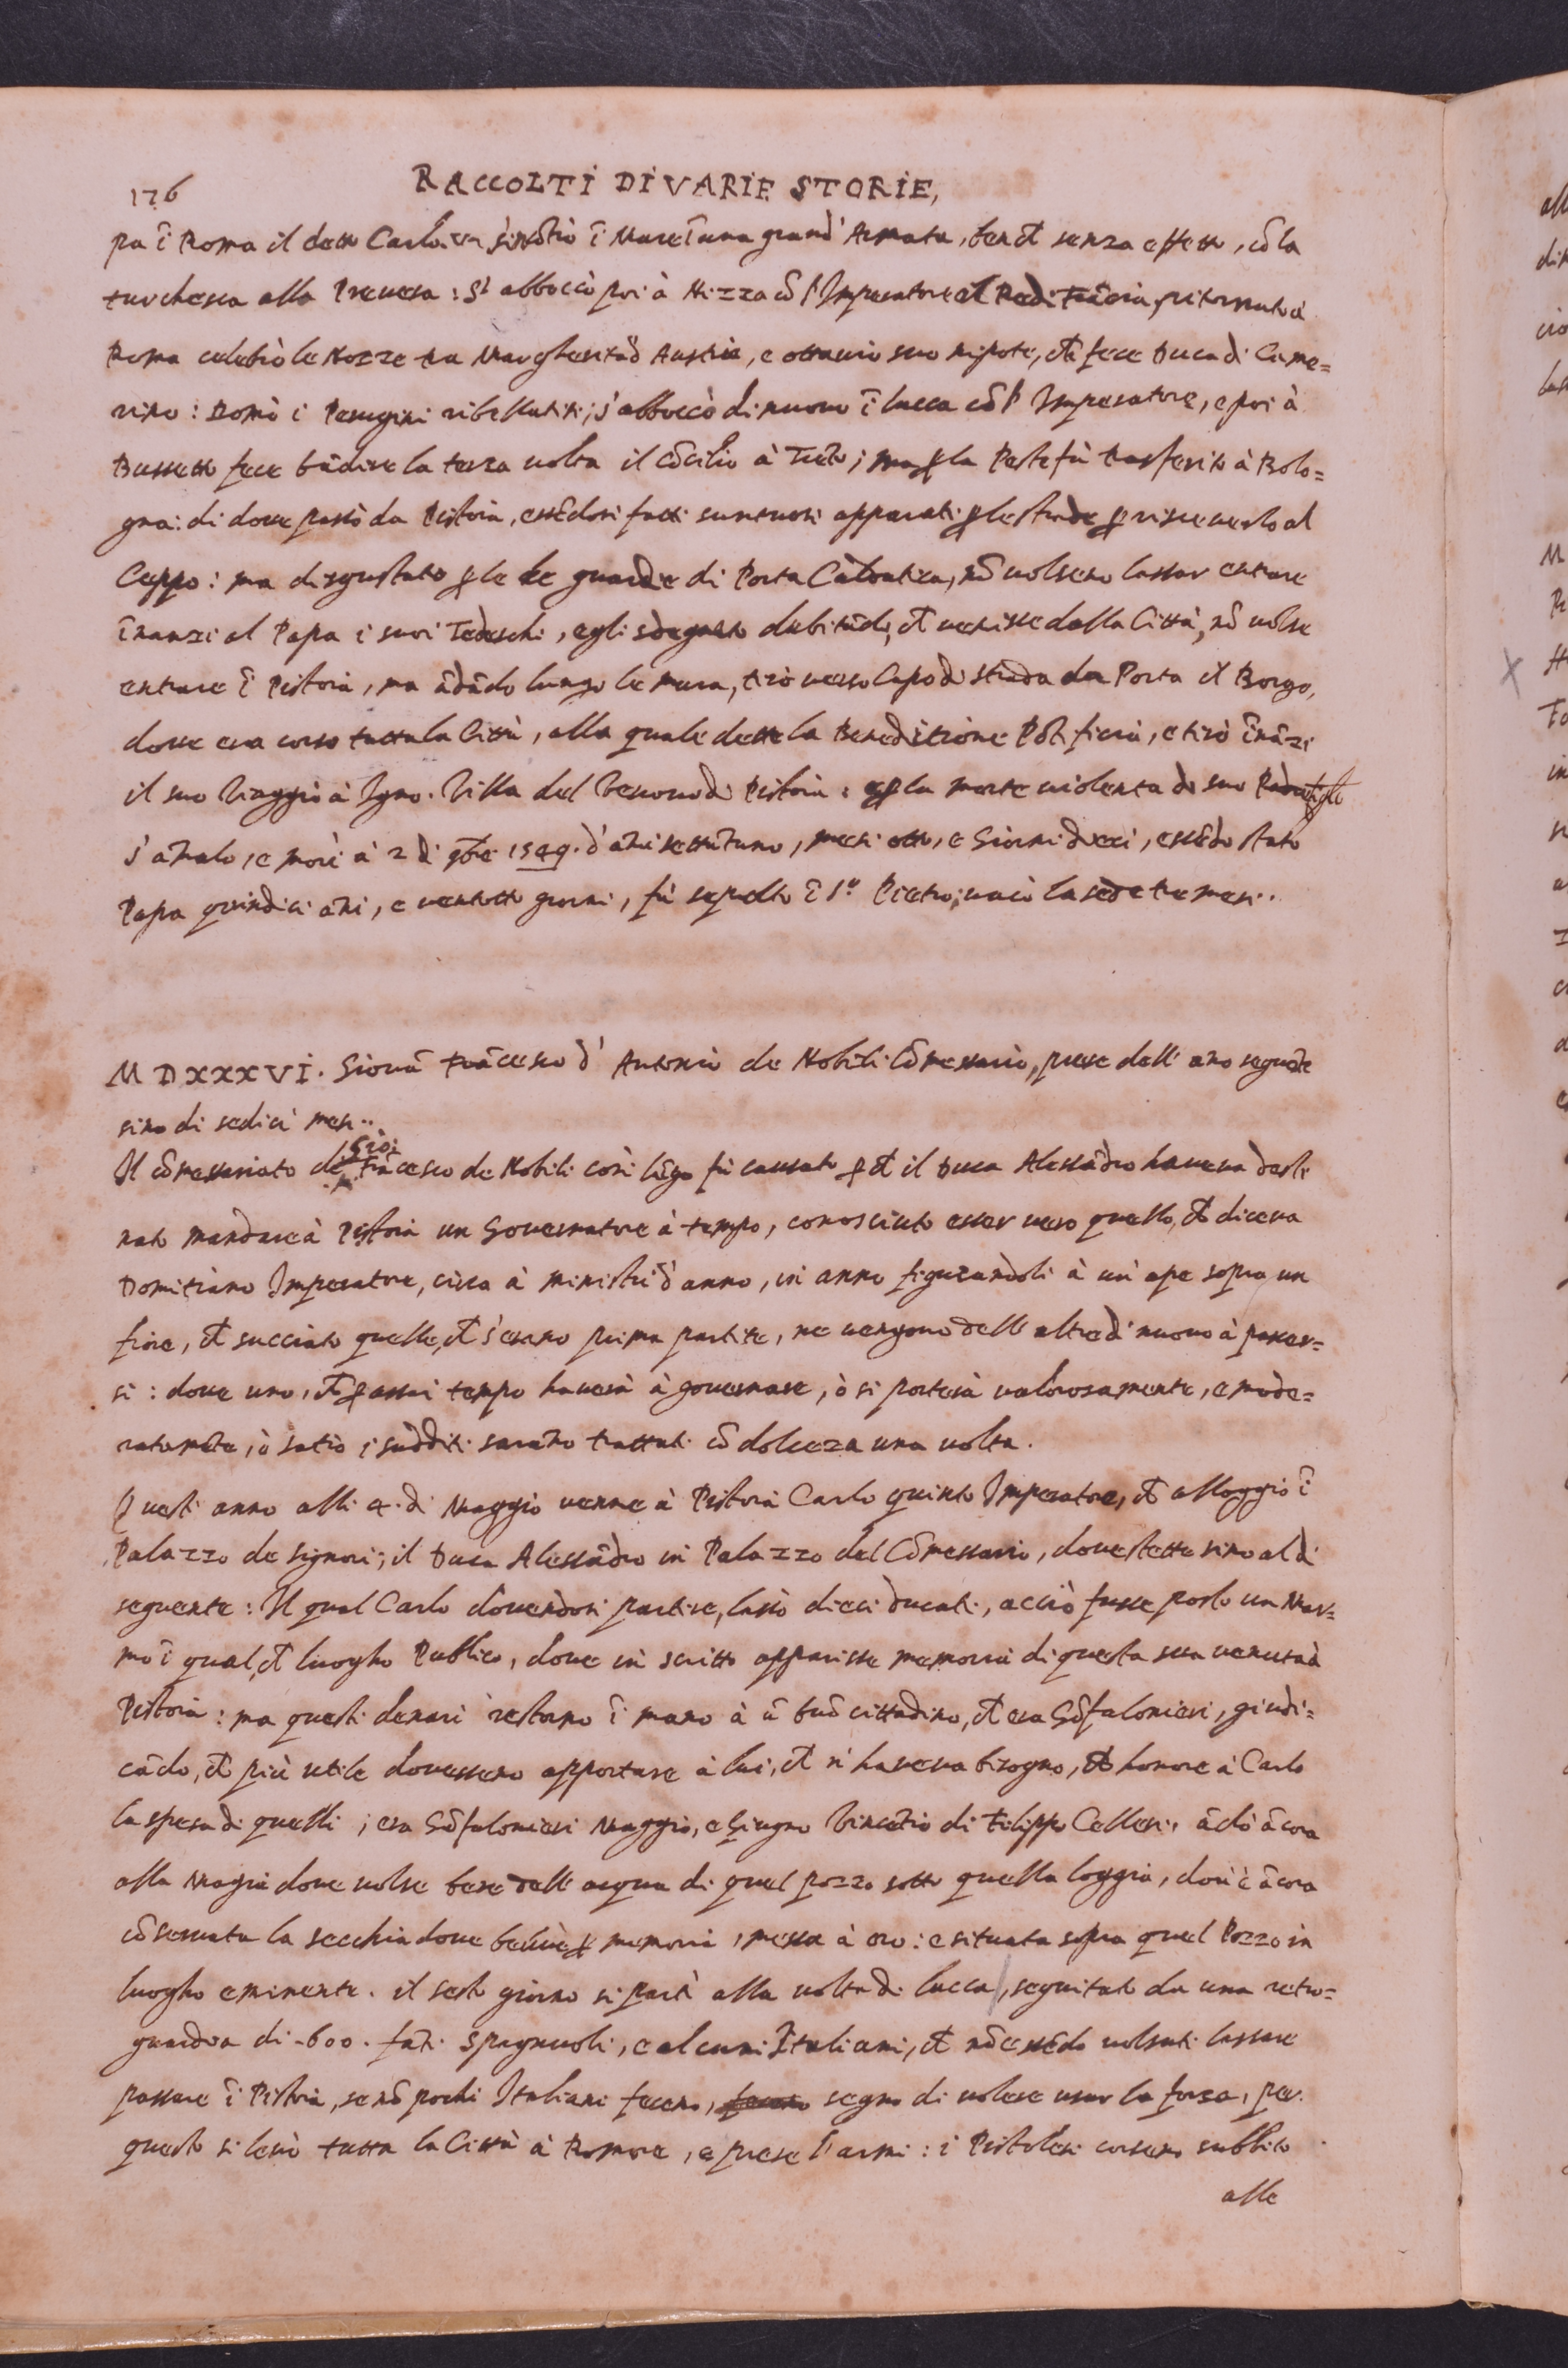 176
RACCOLTI DI VARIE STORIE,
pa ĩ Roma il detto Carlo. ĩ Mare ĩ una grand' Armata, ben cħ senza effetto, cõ la
turchesca alla Prevesa: Si abboccò poi à Nizza cõ l'Imperatore, e'l Re di Frãcia, ritornato à
Roma celebrò le Nozze tra Margherita d Austria, e ottavio suo nipote, cħ fece Duca di Came=
rino: Domò i Perugini ribellatisi; s'abboccò di nuovo ĩ lucca cõ l' Imperatore, e poi à
Bussetto fece bãdire la terza volta il Cõcilio à Trẽto; ma ꝑ la Peste fù trasferito à Bolo=
gna: di dove passò da Pistoia, essẽdosi fatti suntuosi apparati ꝑ le strade ꝑ riscieverlo al
Ceppo: ma disgustato ꝑ le le guardie di Porta Caldatica, nõ volseno lassar entrare
ĩnanzi al Papa i suoi Tedeschi, egli sdegnato dubitãdo, cħ venisse dalla Città, nõ volse
entrare ĩ Pistoia, ma ãdãdo lungo le mura, tirò verso Capo di strada da Porta il Borgo,
dove era corso tutta la Città, alla quale dette la Benedizione Põtificia, e tirò ĩnãzi
il suo Viaggio à Igno. Villa del Vescovo di Pistoia: e ꝑ la morte violenta di suo
s'amalò, e morì à 2 di 9bre 1549. d' ãni settãtuno, mesi otto, e Giorni dieci, essẽdo stato
Papa quindici ãni, e ventotto giorni, fù sepolto ĩ S.º Pietro; vacò la sede tre mesi..
MDXXXVI. Giovã Frãcesco d' Antonio de Nobili Cõmessario, prese dell' ano seguẽte
sino di sedici mesi..
Il cõmessariato di Gio: Frãcesco de Nobili così lũgo fù causato ꝑ cħ il Duca Alessãdro haveva desti
nato mandare à Pistoia un Governatore à tempo, conosciuto esser vero quello, cħ diceva
Domitiano Imperatore, circa à ministri d'anno, in anno figurandoli à un' ape sopra un
fiore, cħ succiato quelle, cħ s'erano prima partite, ne vengono dell' altre di nuovo à pascer=
si: dove uno, cħ ꝑ assai tempo haverà à governare, ò si porterà valorosamente, e mode=
ratamẽte, ò satio i sudditi sarãno trattati cõ dolceza una volta.
Questi anno alli 4. di Maggio venne à Pistoia Carlo quinto Imperatore, cħ alloggiò ĩ
Palazzo de signori; il Duca Alessãdro in Palazzo del Cõmessario, dove stette sino al dì
seguente: Il qual Carlo dovendosi partire, lassò dieci ducati, acciò fusse posto un Mar=
mo ĩ qual, cħ luogho Publico, dove in scritto apparisse memoria di questa sua venuta à
Pistoia: ma questi denari restorno ĩ mano à ũ buõ cittadino, cħ era Gõfalonieri, giudi=
cãdo, cħ più utile dovesseno apportare à lui, cħ n' haveva bisogno, cħ honore à Carlo
la spesa di quelli; era Gõfalonieri Maggio, e Giugno Vincẽtio di Filippo Cellesi. ãdò ãcora
alla Magia dove volse bere dell' acqua di quel pozzo sotto quella loggia, dov' è ãcora
cõservata la secchia dove bevve ꝑ memoria, messa à oro: e situata sopra quel Pozzo in
luogho eminente. il sesto giorno si partì alla volta di lucca, seguitato da una retro=
guardia di -600. fãti Spagnuoli, e alcuni Italiani, cħ nõ essẽdo volsuti lassare
passare ĩ Pistoia, se nõ pochi Italiani feceno, segno di volere usar la forza, per
questo si levò tutta la Città à Romore, e prese l'armi: i Pistolesi corseno subbito
alle